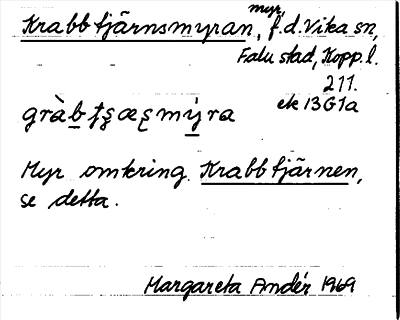 Krabbtjärnsmyran, myr, f.d. Vika sn,
Falu stad, Kopp.l.
211.
ek 13G1a
Myr omkring Krabbtjärnen,
se detta.
Margareta Andér 1969